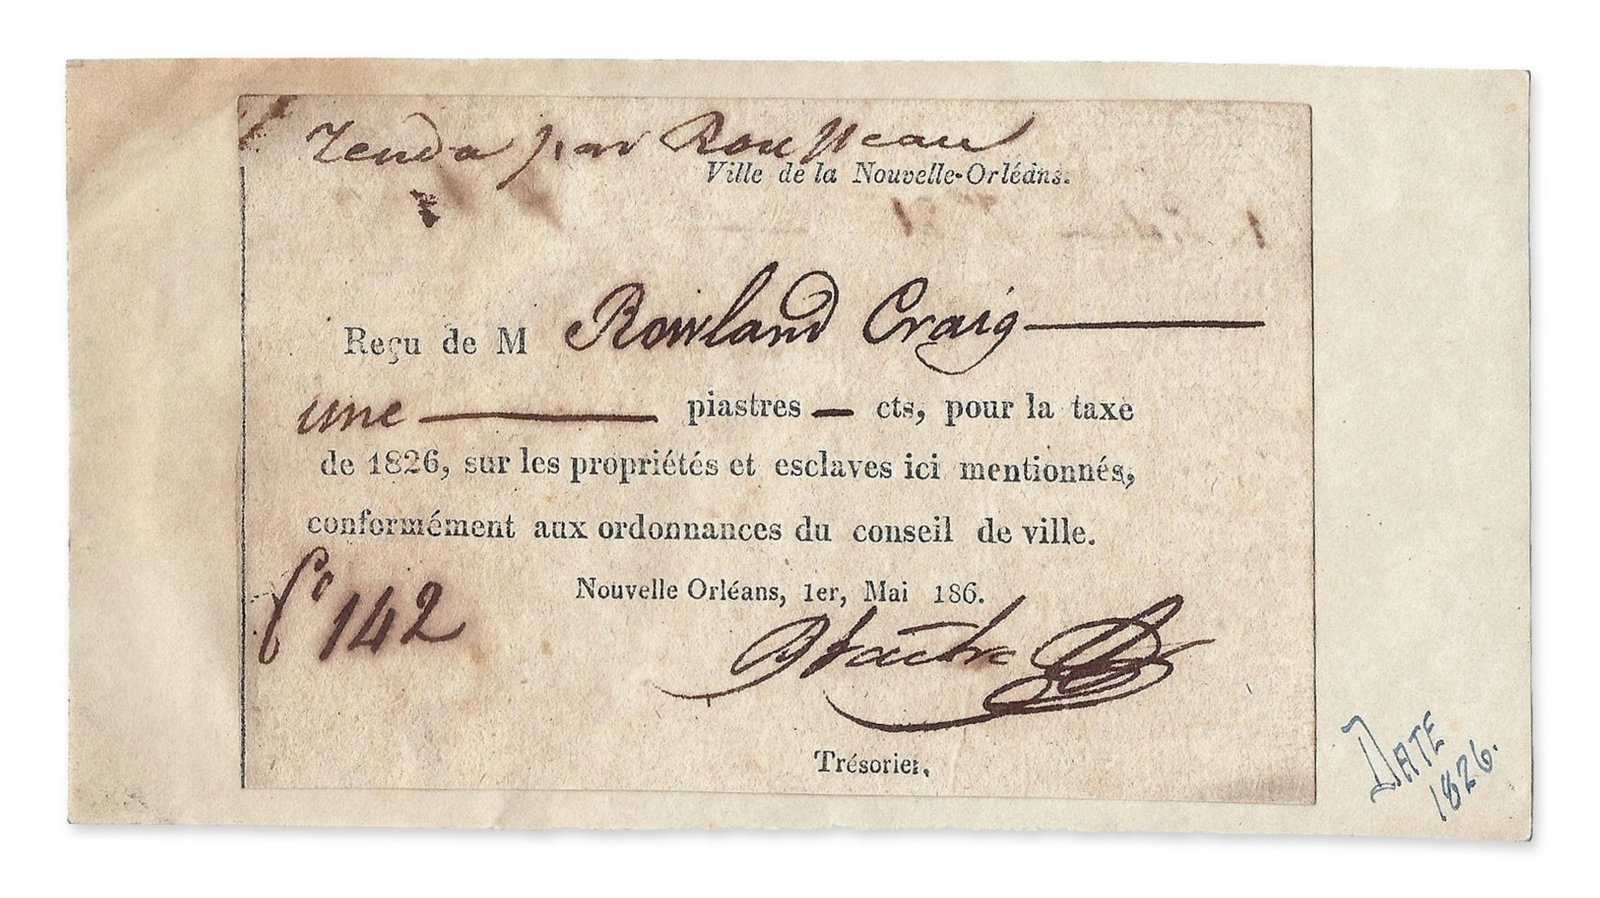 par Rousseau
Ville de la Nouvelle-Orléans.
Reçu de M Rowland Craig
une piastres — cts, pour la taxe
de 1826, sur les propriétés et esclaves ici mentionnés,
conformément aux ordonnances du conseil de ville.
Nouvelle Orléans, 1er, Mai 186.
fo 142
Trésorier,
DATE
1826.